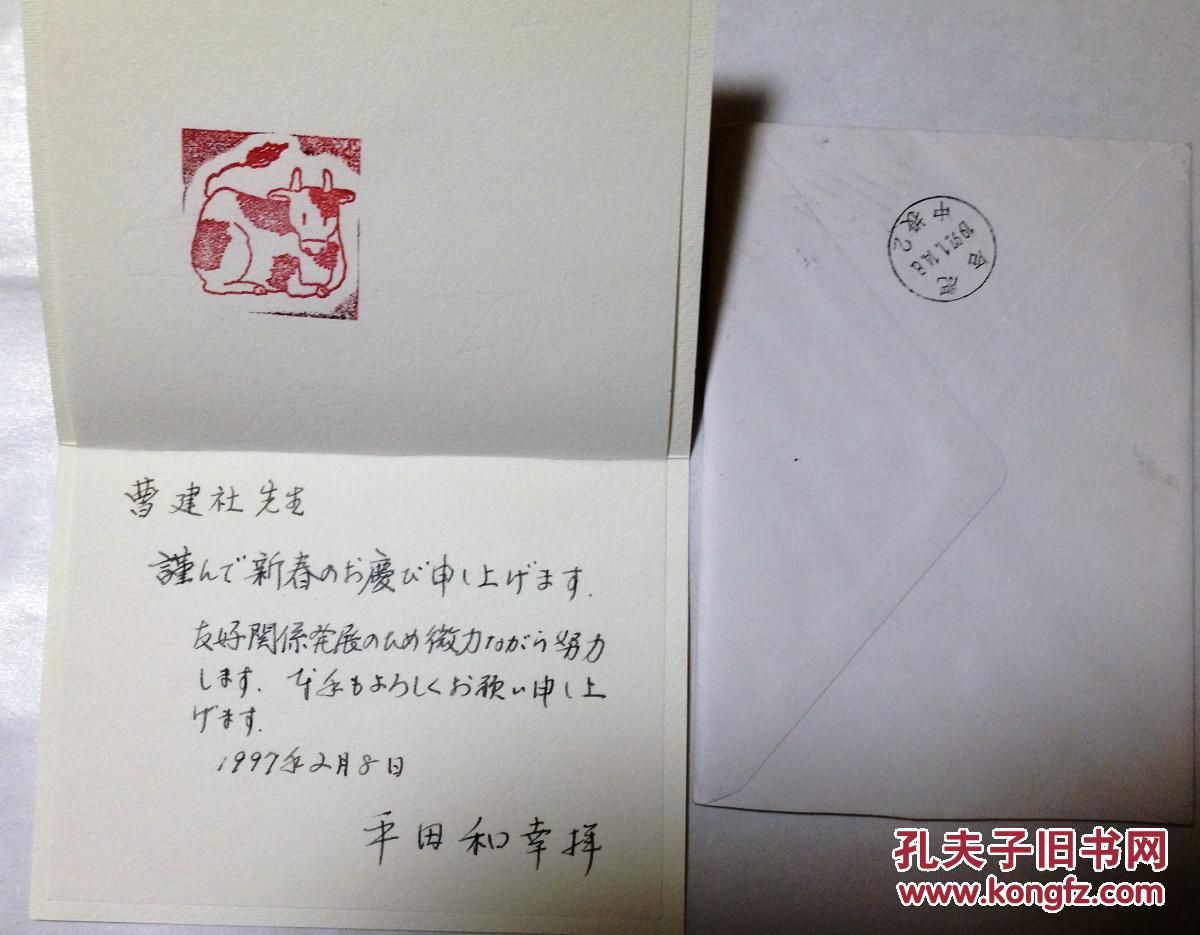 曹建社先生
謹んで新春のお慶び申し上げます.
友好関係発展のため微力ながら努力
します. 本年もよろしくお願い申し上
げます.
1997年2月8日
平田和幸拝
合肥
孔夫子旧书网
www.kongfz.com